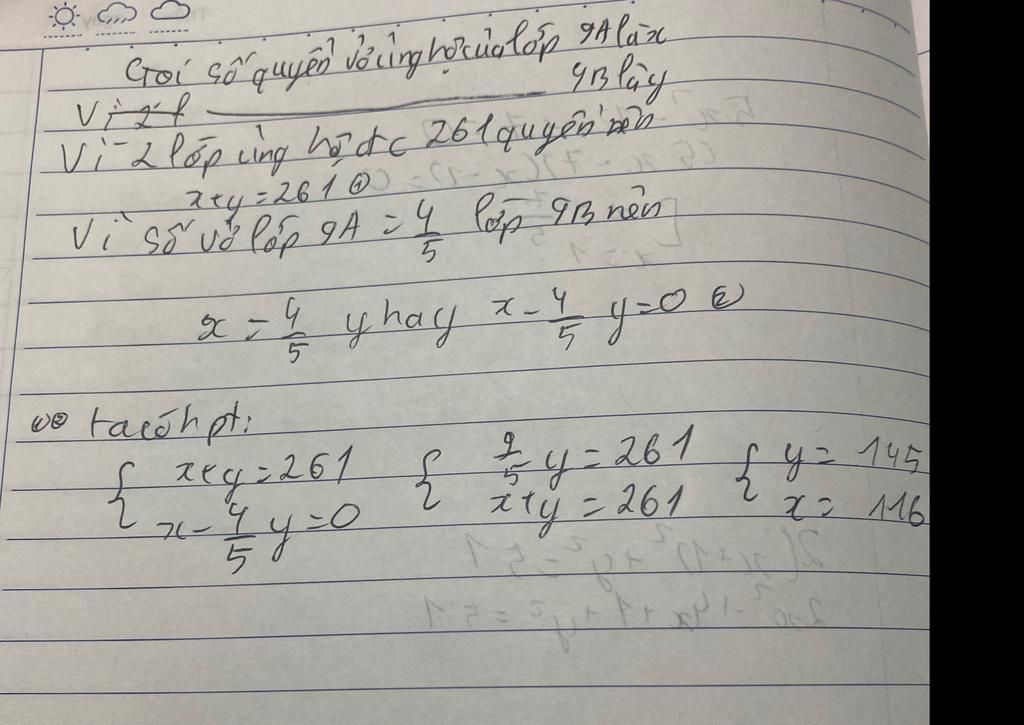 Gọi số quyển vở ủng hộ của lớp 9A là x
9B là y
Vì 2 l
Vì 2 lớp ủng hộ đc 261 quyển nên
x+y=261 ①
Vì số vở lớp 9A = 4/5 lớp 9B nên
x = 4/5 y hay x - 4/5 y = 0 ②
①② ta có hpt:
{ x+y=261 { 9/5 y = 261 { y = 145
x - 4/5 y = 0 x+y = 261 x = 116